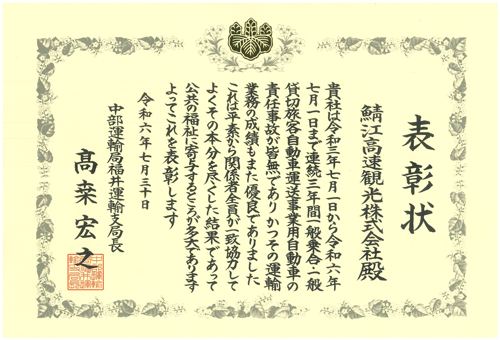 表彰状
鯖江高速観光株式会社殿
貴社は令和三年七月一日から令和六年
七月一日まで連続三年間一般乗合・一般
貸切旅客自動車運送事業用自動車の
責任事故が皆無でありかつその運輸
業務の成績もまた優良でありました
これは平素から関係者全員が一致協力して
よくその本分を尽くした結果であって
公共の福祉に寄与するところが多大であります
よってこれを表彰します
令和六年七月三十日
中部運輸局福井運輸支局長
髙桒宏之